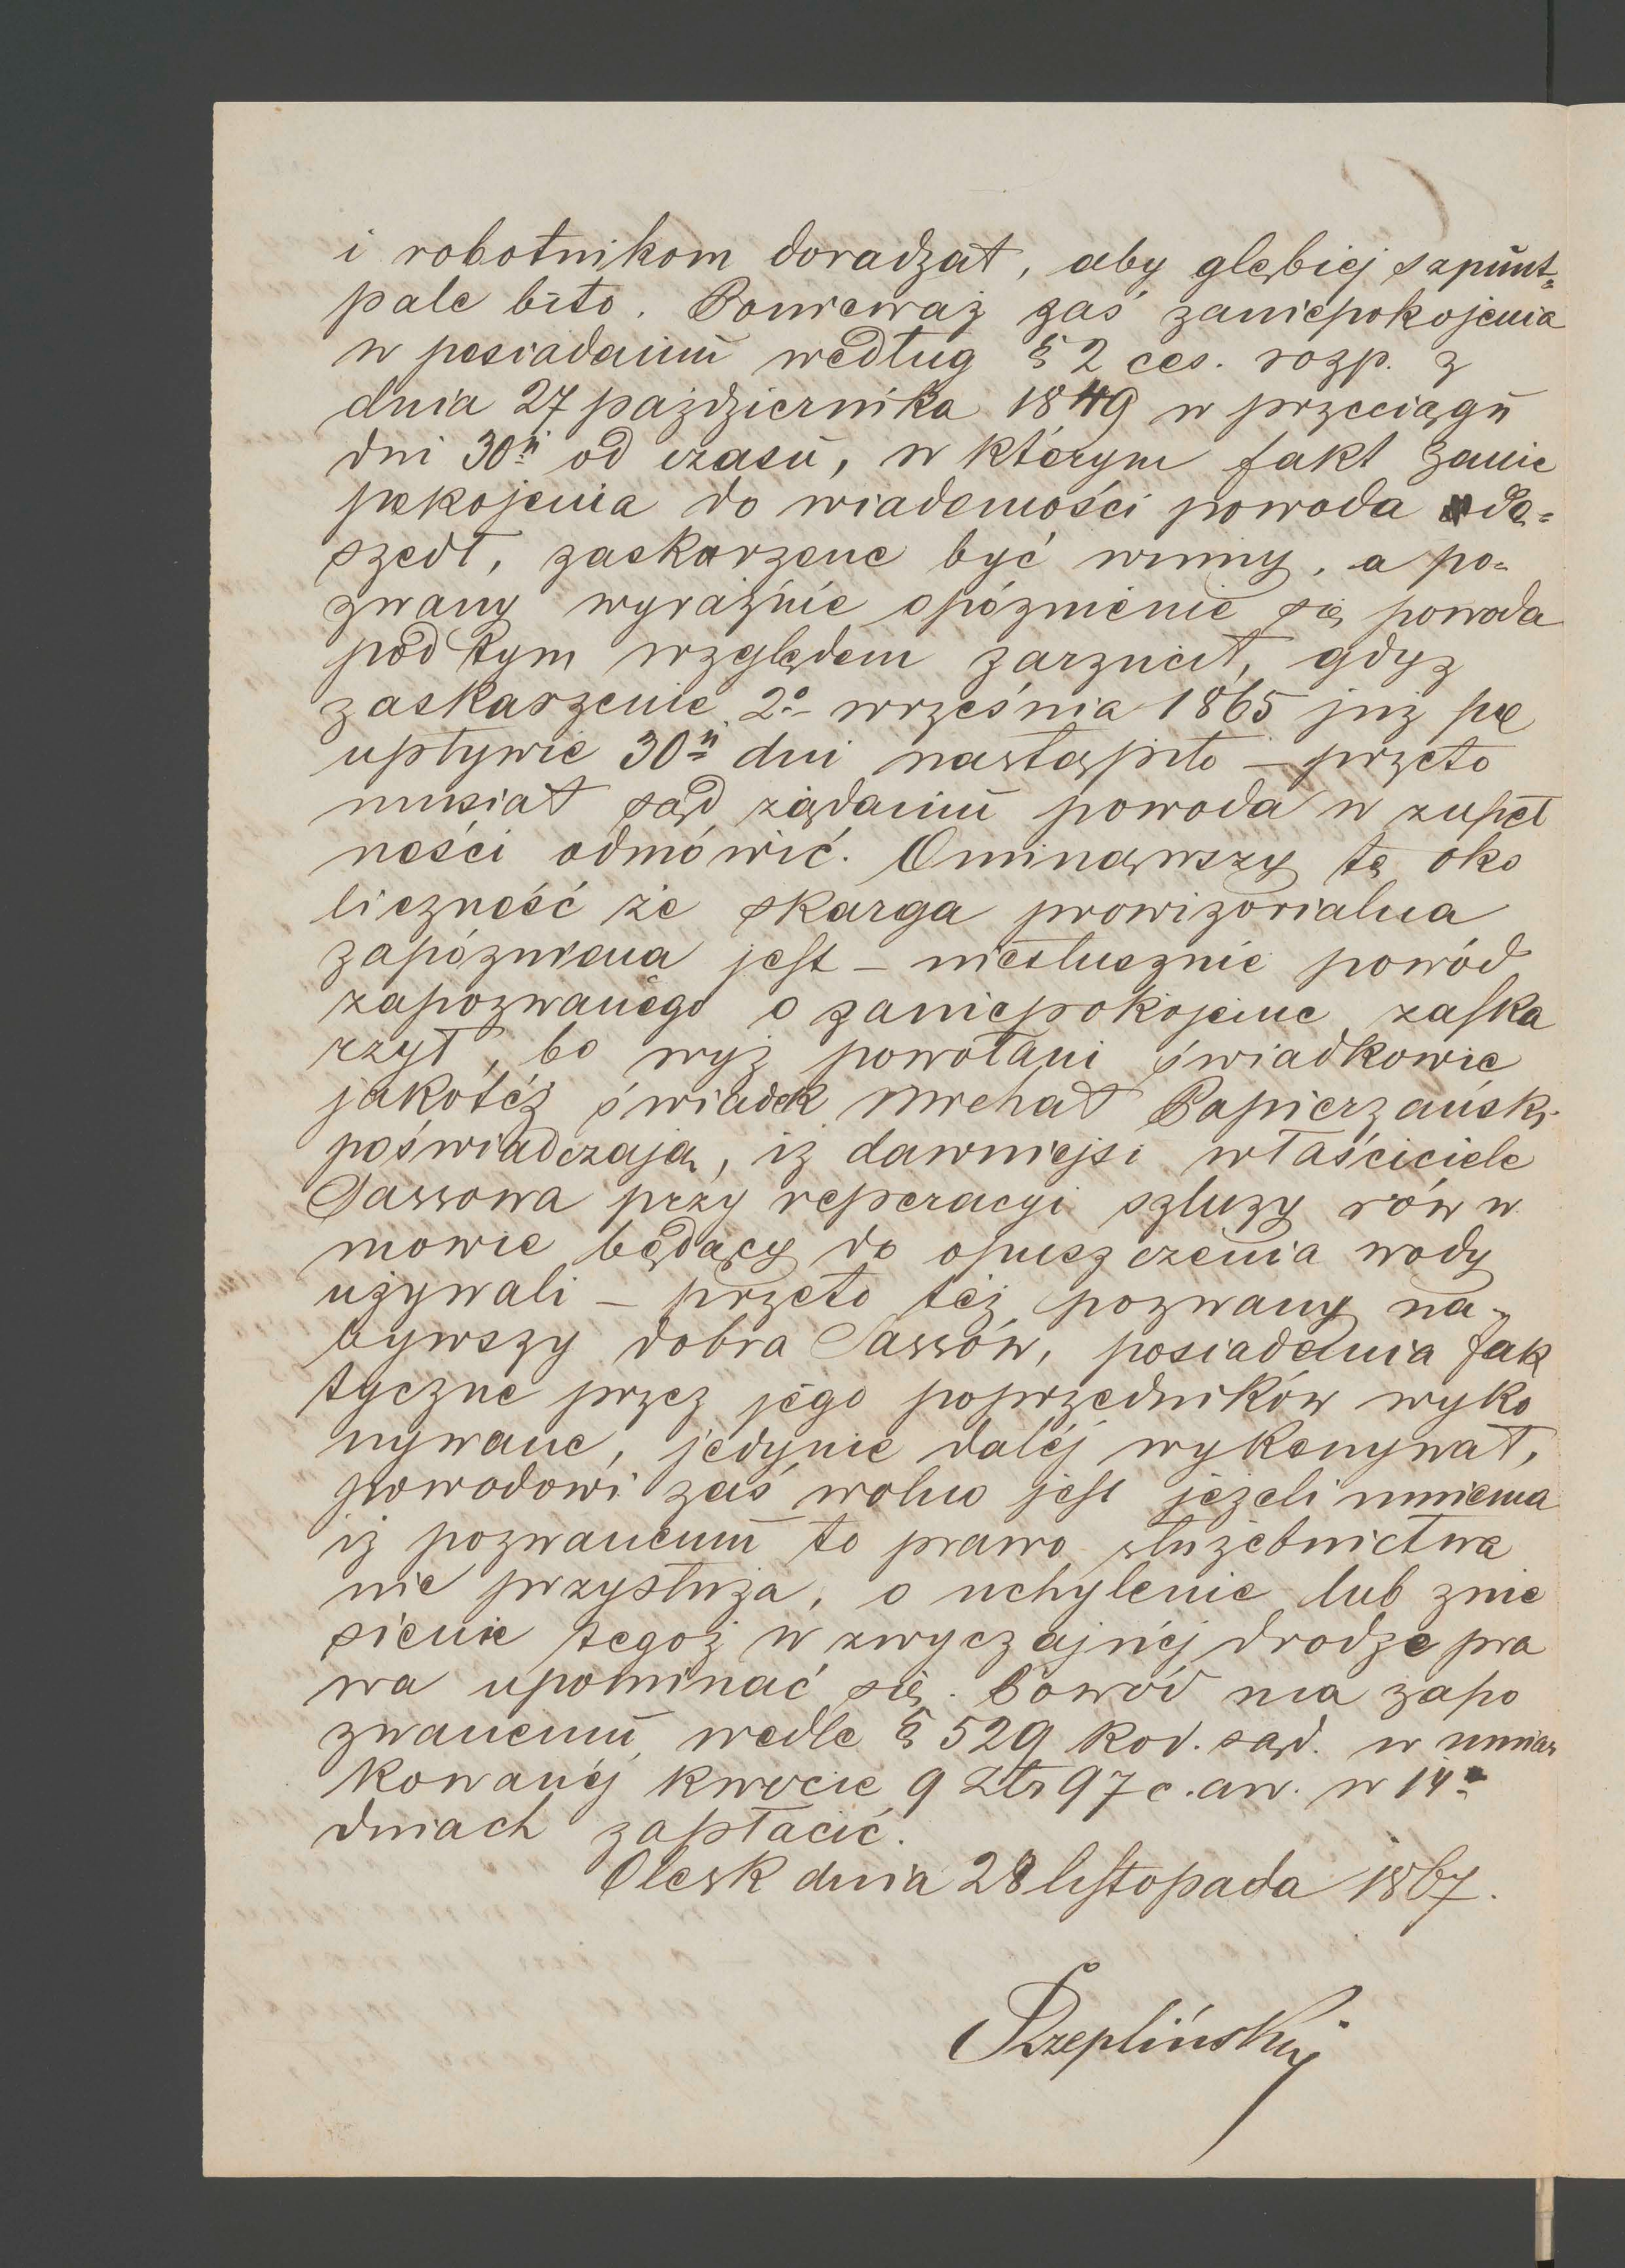 i robotnikom doradzał, aby głębiej szpunt=
pale bito. Ponieważ zaś zaniepokojenia
w posiadaniu według § 2 ces. rozp. z
dnia 27 pażdziernika 1849 w przeciągu
dni 30u od czasu, w którym fakt zanie
pokojenia do wiadomości powoda do=
szedł, zaskarzone być winny, a po=
zwany wyraźnie opóźnienie się powoda
pod tym względem zarzucił, gdyz
zaskarzenie 2o września 1865 już po
upływie 30u dni nastąpiło – przeto
musiał sąd ządaniu powoda w zupeł
ności odmówić. Ominąwszy tę oko
liczność że skarga prowizorialna
zapóźniona jest – niesłusznie powód
zapozwanego o zaniepokojenie zaska
rzył, bo wyż powołani świadkowie
jakoteż świadek Michał Papierzański
poświadczają, iż dawniejsi właściciele
Sassowa przy reperacyi szluzy rów w
mowie będący do opuszczenia wody
używali – przeto też pozwany na=
bywszy dobra Sassów, posiadania fak
tyczne przez jego poprzedników wyko
nywane, jedynie daléj wykonywał,
powodowi zaś wolno jest jeżeli mniema
iż pozwanemu to prawo służebnictwa
nie przysłuża, o uchylenie lub znie
sienie tegoż w zwyczajnéj drodze pra
wa upominać się. Powód ma zapo
zwanemu wedle § 529 kod. sąd. w umiar
kowanéj kwocie 9 Złr 97 c. aw. w 14
dniach zapłacić.
Olesk dnia 28 listopada 1867.
Rzepliński